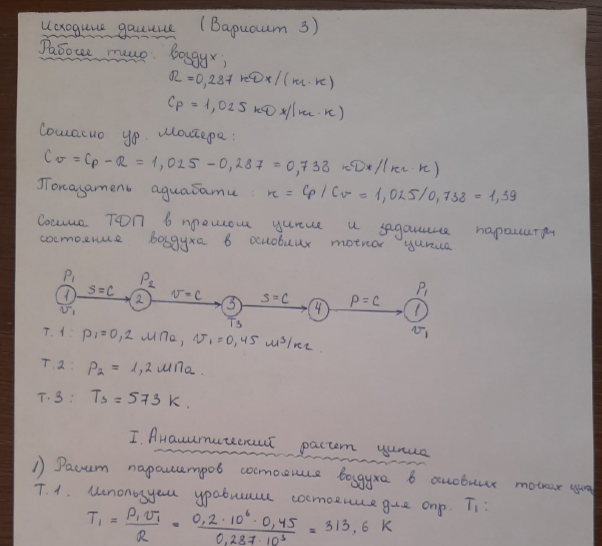 Исходные данные (Вариант 3)
Рабочее тело: воздух;
R = 0,287 кДж/(кг·К)
Cp = 1,025 кДж/(кг·К)
Согласно ур. Майера:
Cv = Cp - R = 1,025 - 0,287 = 0,738 кДж/(кг·К)
Показатель адиабаты: к = Cp/Cv = 1,025/0,738 = 1,39
Схема ТДП в прямом цикле и заданные параметры
состояния воздуха в основных точках цикла
P₁ P₂ P₁
1 S=C 2 v=C 3 S=C 4 P=C 1
v₁ T₃ v₁
т.1: p₁=0,2 МПа, v₁=0,45 м³/кг.
т.2: P₂ = 1,2 МПа.
т.3: T₃ = 573 К.
I. Аналитический расчет цикла
1) Расчет параметров состояния воздуха в основных точках
Т.1. Используем уравнение состояния для опр. T₁:
T₁ = P₁v₁/R = 0,2·10⁶·0,45/0,287·10³ = 313,6 К